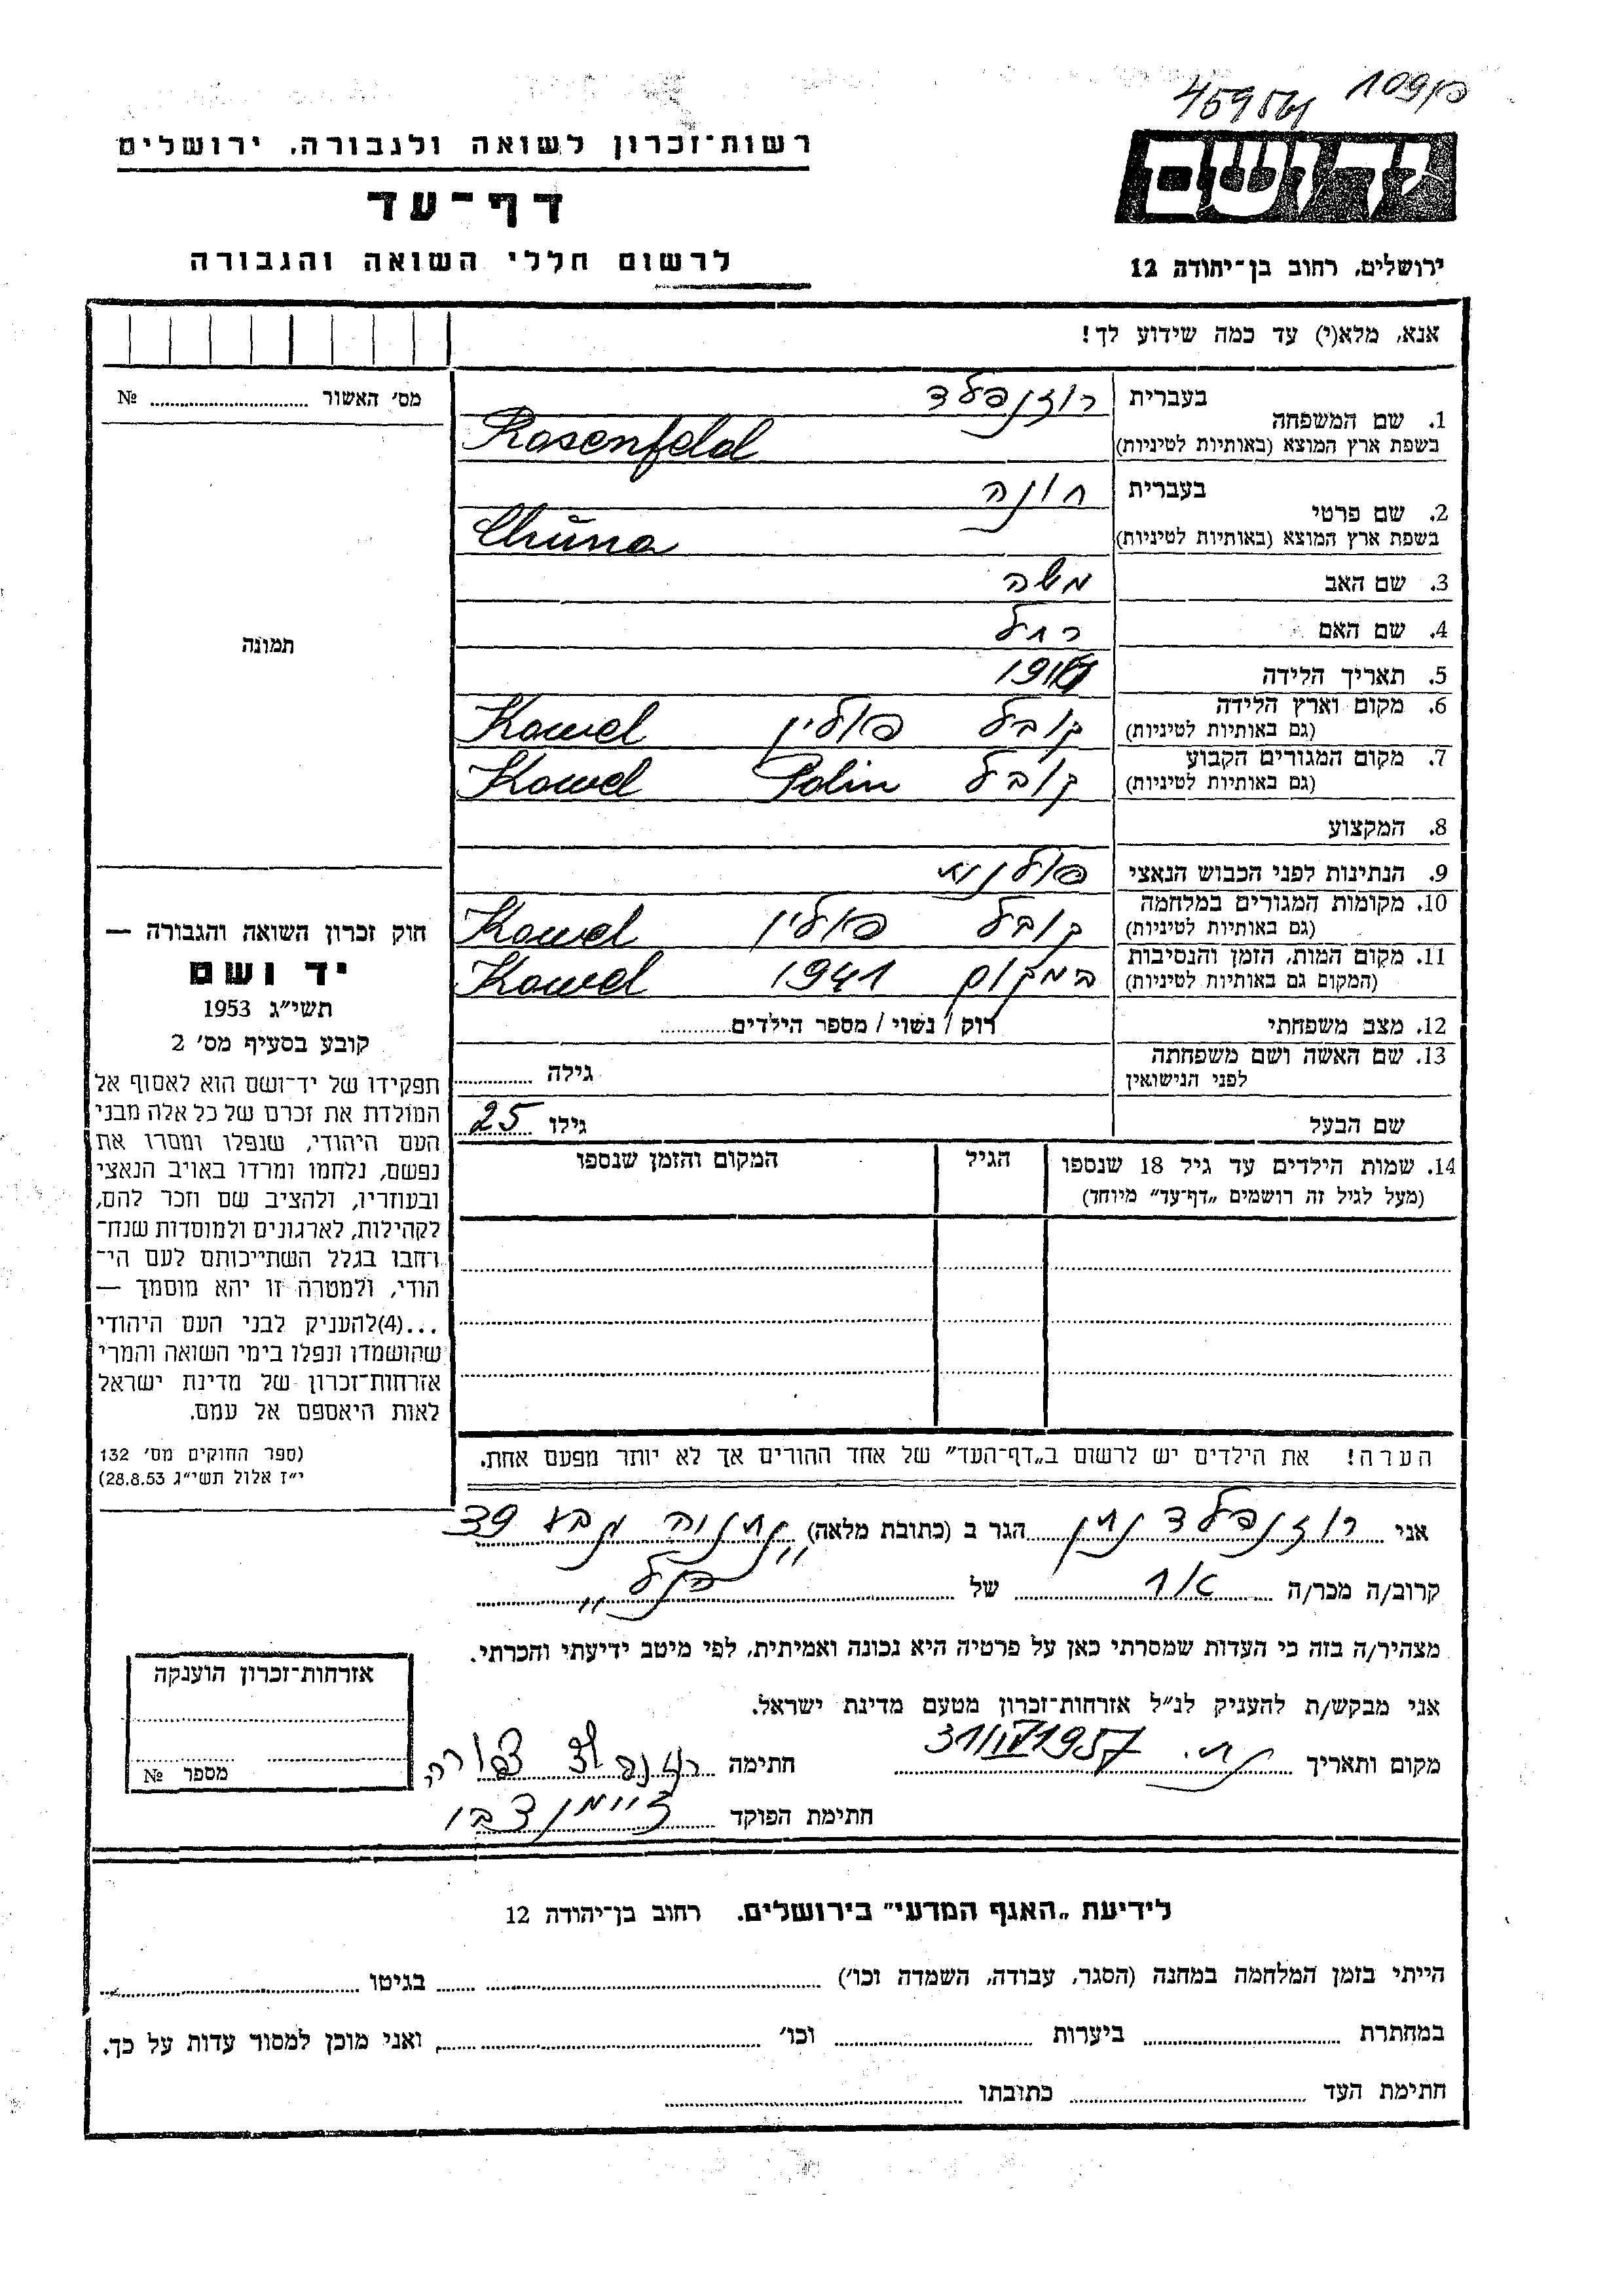 רשות־זכרון לשואה ולגבורה, ירושלים
דף־עד
לרשום חללי השואה והגבורה
יד ושם
ירושלים, רחוב בן־יהודה 12
אנא, מלא(י) עד כמה שידוע לך!
מס׳ האשור № 
תמונה
1. שם המשפחה בעברית רוזנפלד
בשפת ארץ המוצא (באותיות לטיניות) Rosenfeld
2. שם פרטי בעברית חונה
בשפת ארץ המוצא (באותיות לטיניות) Chuna
3. שם האב משה
4. שם האם רחל
5. תאריך הלידה
6. מקום וארץ הלידה (גם באותיות לטיניות) קובל פולין Kowel
7. מקום המגורים הקבוע (גם באותיות לטיניות) קובל Polin Kowel
8. המקצוע
9. הנתינות לפני הכבוש הנאצי פולנית
10. מקומות המגורים במלחמה (גם באותיות לטיניות) קובל פולין Kowel
11. מקום המות, הזמן והנסיבות (המקום גם באותיות לטיניות) במקום 1941 Kowel
12. מצב משפחתי רוק / נשוי / מספר הילדים
13. שם האשה ושם משפחתה לפני הנישואין גילה
שם הבעל גילו 25
14. שמות הילדים עד גיל 18 שנספו הגיל המקום והזמן שנספו
(מעל לגיל זה רושמים „דף־עד” מיוחד)
חוק זכרון השואה והגבורה —
יד ושם
תשי״ג 1953
קובע בסעיף מס׳ 2
תפקידו של יד־ושם הוא לאסוף אל
המולדת את זכרם של כל אלה מבני
העם היהודי, שנפלו ומסרו את
נפשם, נלחמו ומרדו באויב הנאצי
ובעוזריו, ולהציב שם וזכר להם,
לקהילות, לארגונים ולמוסדות שנח־
רחבו בגלל השתייכותם לעם הי־
הודי, ולמטרה זו יהא מוסמך —
...(4)להעניק לבני העם היהודי
שהושמדו ונפלו בימי השואה והמרי
אזרחות־זכרון של מדינת ישראל
לאות היאספם אל עמם.
(ספר החוקים מס׳ 132
י״ז אלול תשי״ג 28.8.53)
הערה! את הילדים יש לרשום ב„דף־העד” של אחד ההורים אך לא יותר מפעם אחת.
אני רוזנפלד נתן הגר ב (כתובת מלאה) נתניה 39
קרוב/ה מכר/ה אח של הנ״ל
מצהיר/ה בזה כי העדות שמסרתי כאן על פרטיה היא נכונה ואמיתית, לפי מיטב ידיעתי והכרתי.
אני מבקש/ת להעניק לנ״ל אזרחות־זכרון מטעם מדינת ישראל.
מקום ותאריך 1957 חתימה
חתימת הפוקד
אזרחות־זכרון הוענקה
מספר №
לידיעת „האגף המדעי” בירושלים. רחוב בן־יהודה 12
הייתי בזמן המלחמה במחנה (הסגר, עבודה, השמדה וכו׳) בגיטו
במחתרת ביערות וכו׳ ואני מוכן למסור עדות על כך.
חתימת העד כתובתו